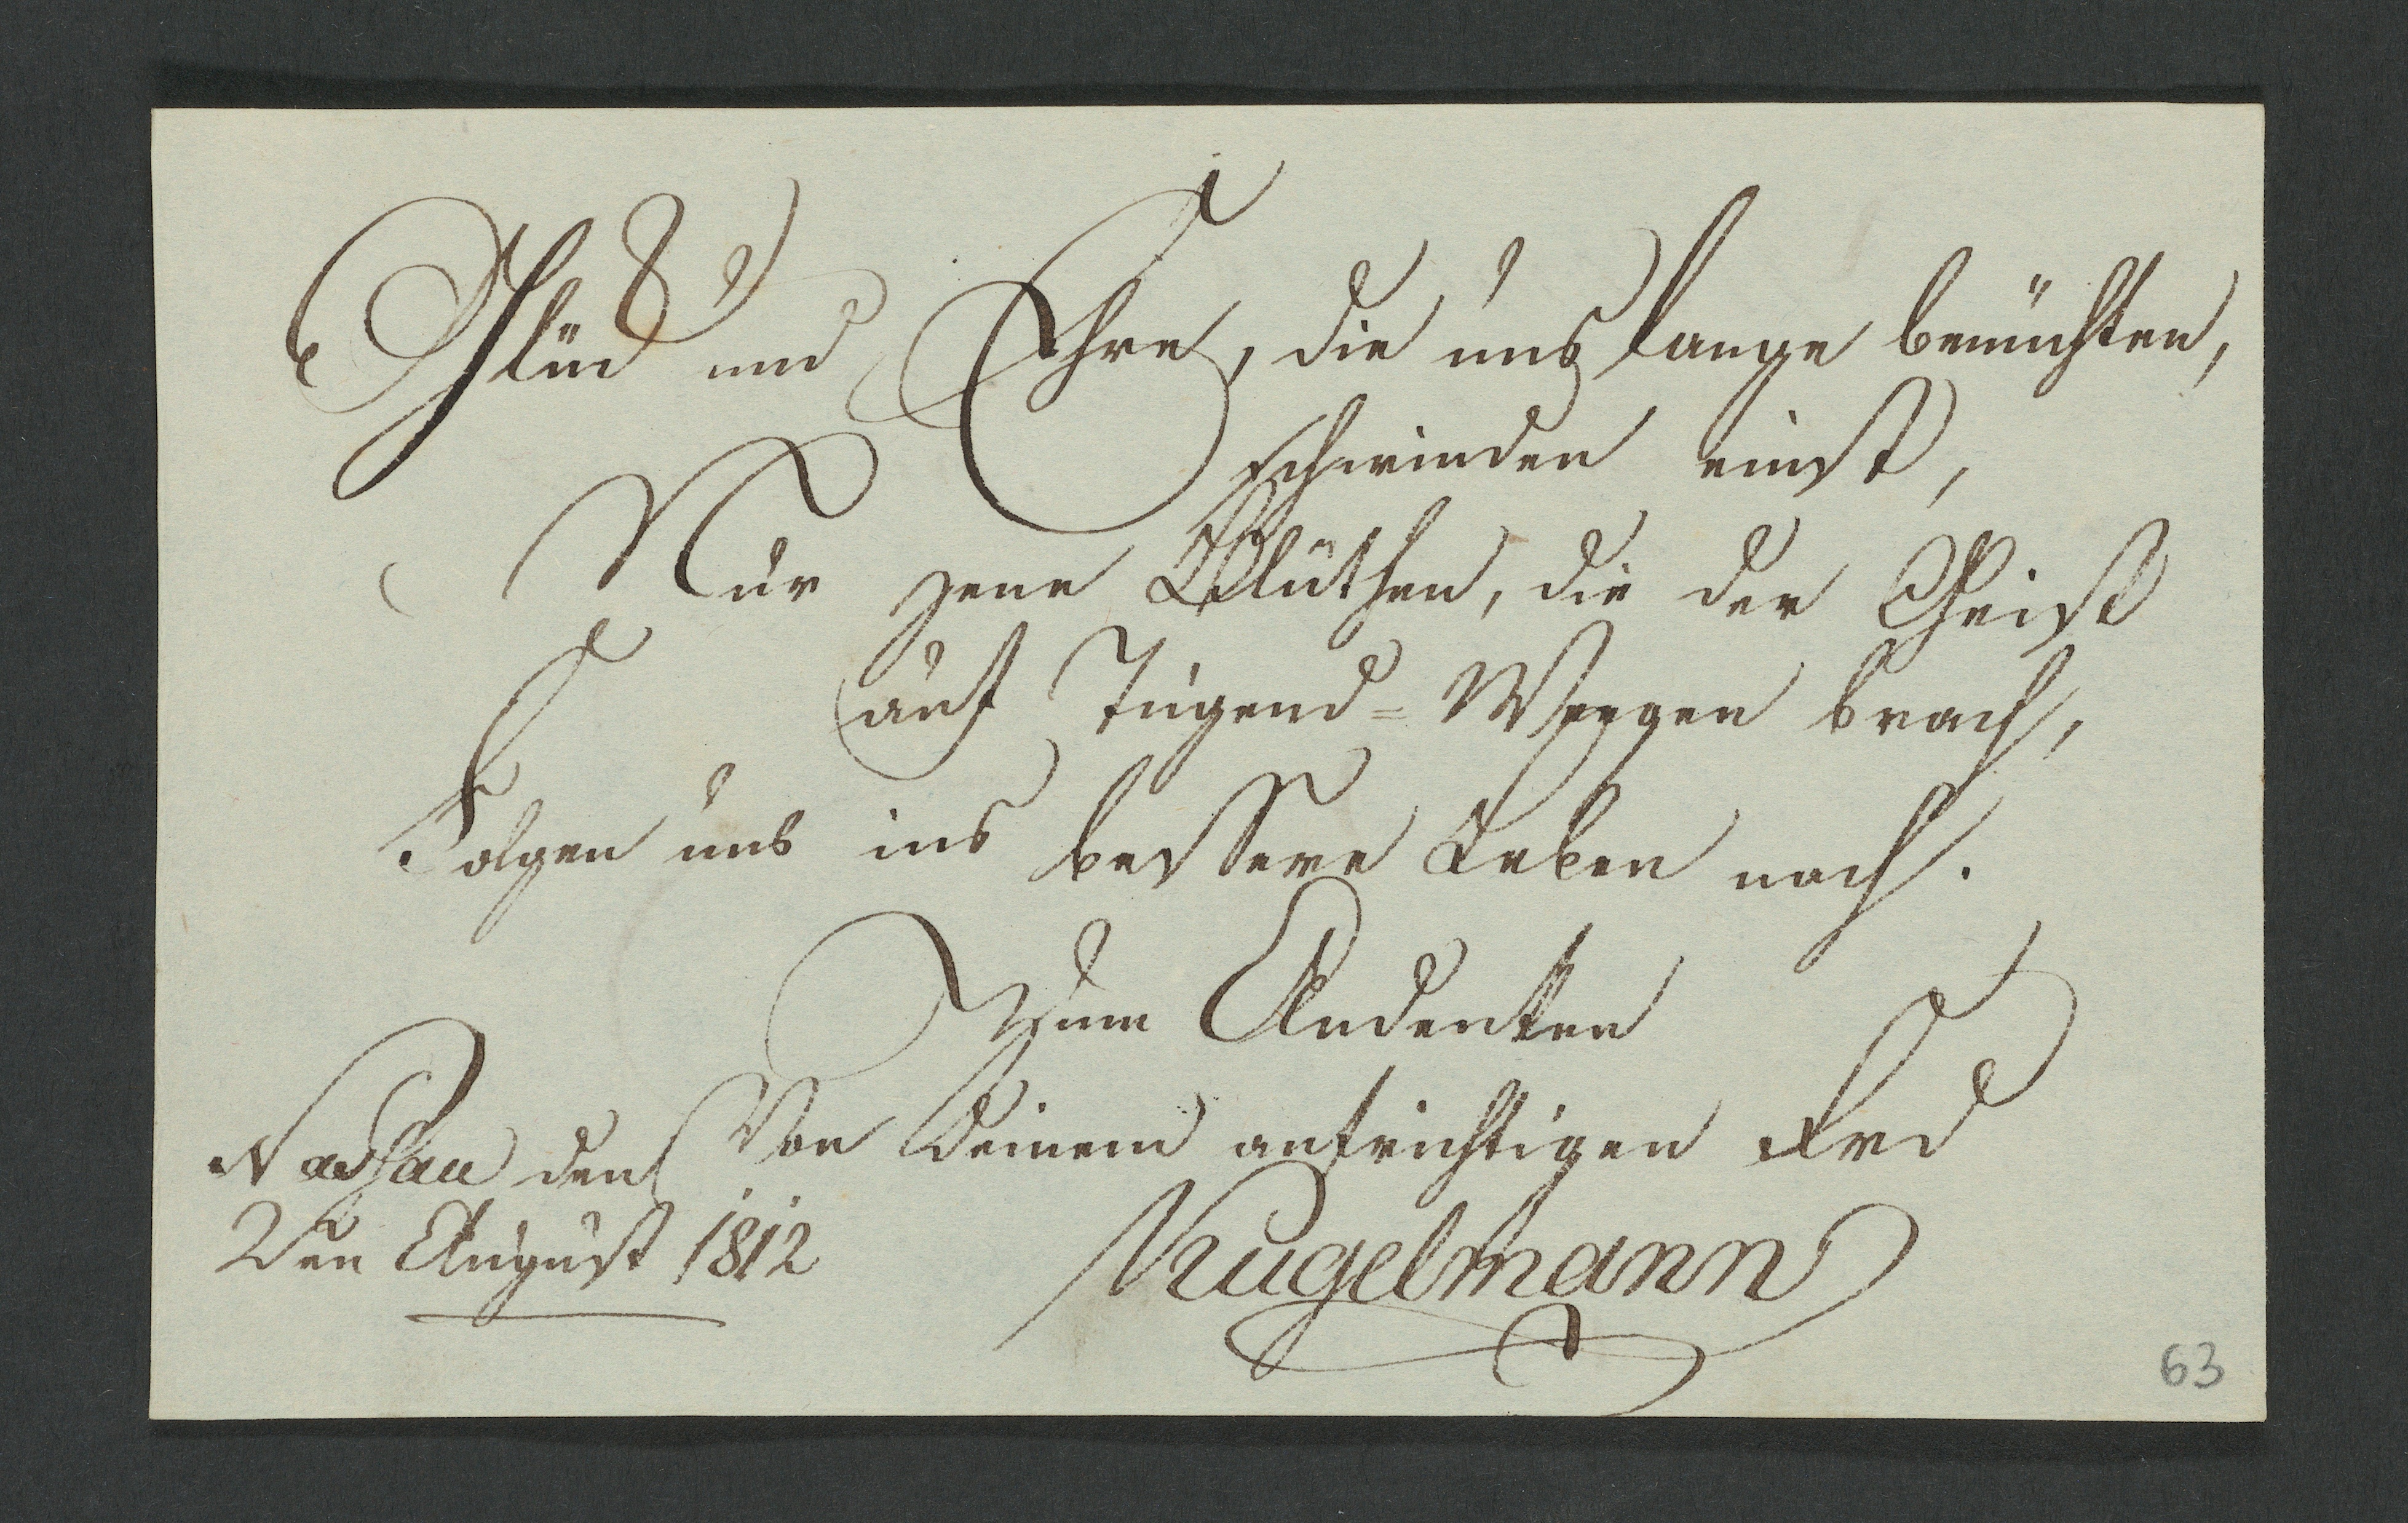 Glück und Ehre, die uns lange
schwinden einst,
Nur jene Blüthen, die der Geist
auf Tugend=Weegen brach,
Folgen uns ins bessere Leben nach.
Zum Andenken
Von Deinem aufrichtigen Frd
Kugelmann
Nassau den
2ten August 1812
63